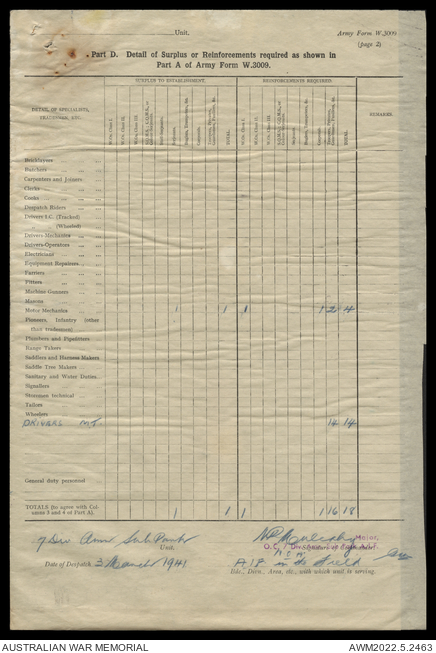 Unit.
Army Form W.3009
(page 2)
Part D. Detail of Surplus or Reinforcements required as shown in
Part A of Army Form W.3009.
SURPLUS TO ESTABLISHMENT.
REINFORCEMENTS REQUIRED
DETAIL OF SPECIALISTS,
TRADESMEN, ETC.
W.Os. Class I.
W.Os. Class II.
W.Os. Class III.
TOTAL.
W.Os. Class I.
W.Os. Class II.
W.Os. Class III.
TOTAL.
REMARKS.
Bricklayers
Butchers
Carpenters and Joiners
Clerks
Cooks
Despatch Riders
Drivers I.C. (Tracked)
" (Wheeled)
Drivers-Mechanics
Drivers-Operators
Electricians
Equipment Repairers
Farriers
Fitters
Machine Gunners
Masons
Motor Mechanics 1 1 1 1 2 4
Pioneers, Infantry (other
than tradesmen)
Plumbers and Pipefitters
Range Takers
Saddlers and Harness Makers
Saddle Tree Makers
Sanitary and Water Duties
Signallers
Storemen technical
Tailors
Wheelers
DRIVERS MT 14 14
General duty personnel
TOTALS (to agree with Col-
umns 3 and 4 of Part A). 1 1 1 1 16 18
7 Div Amn Sub Park
Unit.
Major,
O.C.
Date of Despatch 3 March 1941
A.I.F. in the Field
Bde., Divn., Area, etc., with which unit is serving.
AUSTRALIAN WAR MEMORIAL
AWM2022.5.2463